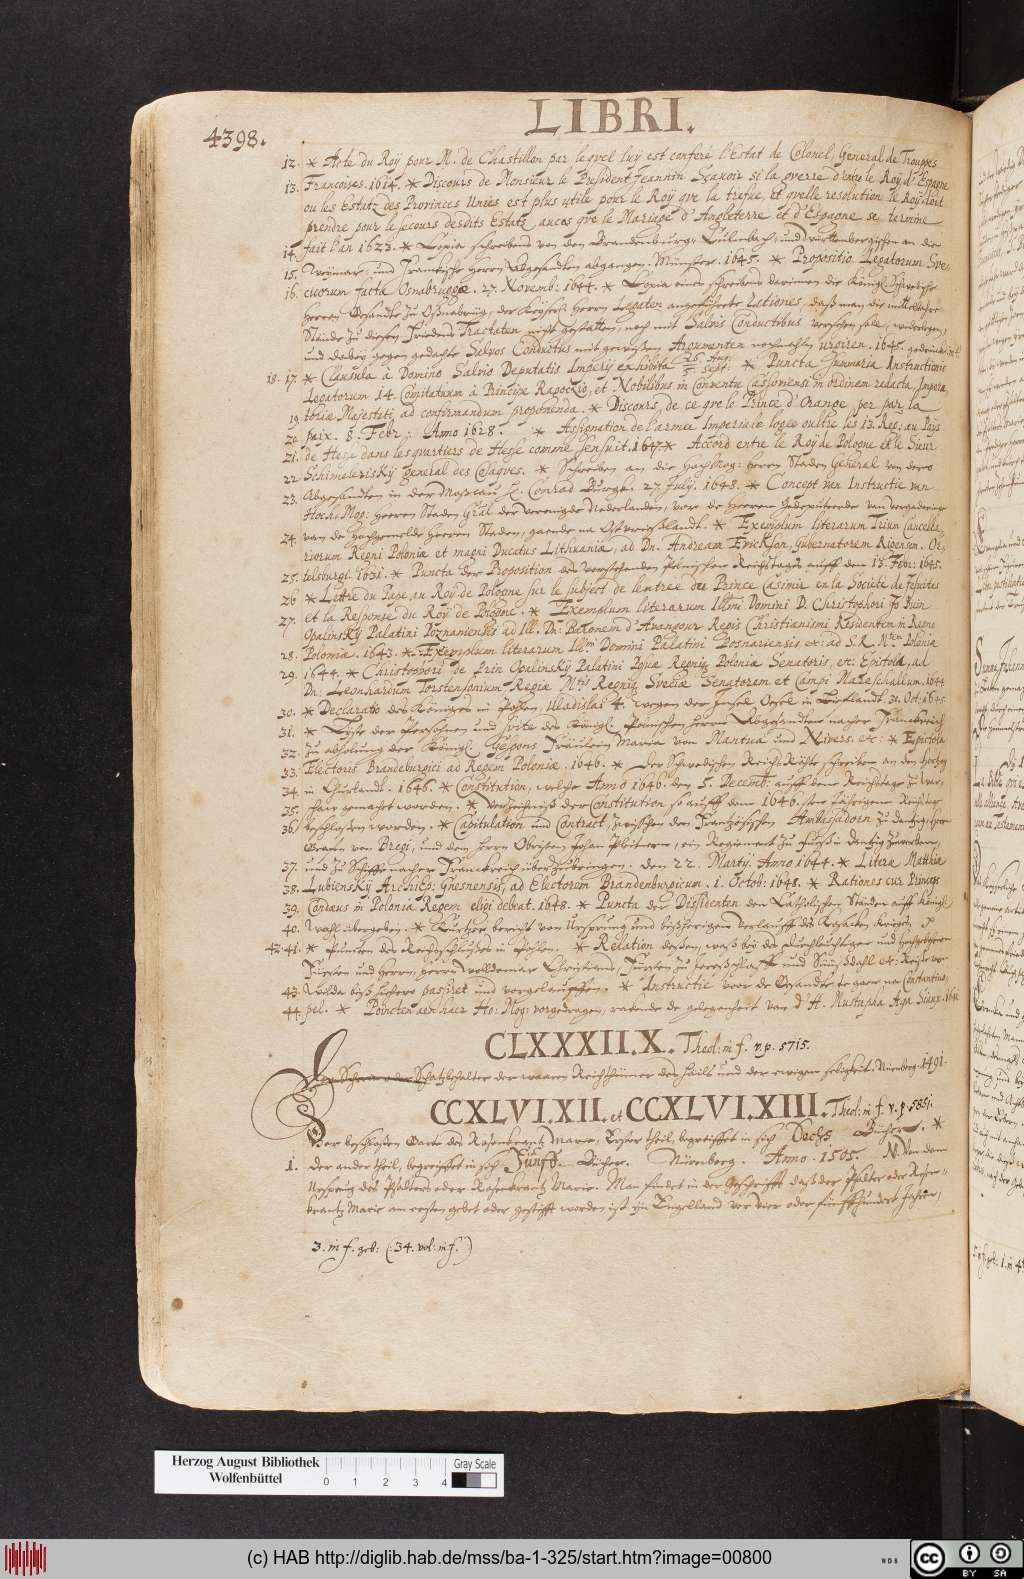 4398.
LIBRI.
12. * Acte du Roÿ pour M. de Chastillon par lequel luÿ est conferé l'Estat de Colonel, General de Trouppes
13. Françoises. 1614. * Discours de Monsieur le President Jeannin Sçavoir si la guerre d'entre le Roÿ d'Espagne
ou les Estatz des Provinces Unies est plus utile pour le Roÿ que la trefue, et quelle resolution le Roÿ doit
prendre pour le secours desdits Estats avant que le Mariage d'Angleterre et d'Espagne se termine
14. fait l'an 1623. * Copia schreibens von den Brandenburg: Culmbach: und Württenbergischen an die
15. Weÿmar: und Fränkische Herrn Abgesandten abgangen. Münster. 1645. * Propositio Legatorum Sve-
16. cicorum facta Osnabruggæ. 27. Novemb: 1644. * Copia eines schreibens darinnen die Königl: Schwedische
Herren Gesandte zu Oßnabrüg, der Keÿserl: Herrn Legaten angeführte rationes, daß man die mittelbahre
Stände zu diesen Friedens Tractaten nicht gestatten, noch mit Salvis Conductibus versehen solle, wiederlegen,
und dabeÿ gegen gedachte Salvos Conductus mit gewissen Argumenten nochmahln urgiren. 1645. gedruckt in 4.
18. 17. * Clausula à Domino Salvio Deputatis Imperÿ exhibita 26 Aug. / 5 Sept: * Puncta Summaria Instructionis
Legatorum 14. Comitatuum à Principe Ragoczio, et Nobilibus in Conventu Cassoviensi in ordinem redacta, Impera-
19. toriæ Majestati, ad confirmandum proponenda. * Discours de ce que le Prince d'Orange per par la
20. paix. 8. Febr: Anno 1628. * Assignation de l'armee Imperiale logee oultre les 13. Reg: au Païs
21. de Hesse dans les quartiers de Hesse comme sensuit. 1647. * Accord entre le Roÿ de Pologne et le Sieur
22. Schimelerisky general des Cosaques. * Schreiben an die HochMog: Herrn Staden General von dero
23. Abgesandten in der Moscau H. Conrad Burge. 27 Julÿ. 1648. * Concept van Instructie van
Hoch: Mog: Heeren Staden Gñral der verenigde Nederlanden, vor de Herren Gedeputeerde van vergaderinge
24. van de Hochgemelde Heeren Staden, gaende na Ostvrieslandt. * Exemplum literarum Trium Cancella-
riorum Regni Poloniæ et magni Ducatus Lithuaniæ, ad Dn. Andream Erickson, Gubernatorem Rigensem. Or-
25. telsburgi. 1631. * Puncta der Proposition des verstehenden Polnischen Reichstages auff den 13. Febr: 1645.
26. * Lettre du Pape au Roÿ de Pologne sur le subject de lentree du Prince Casimir en la Societé de Jesuites
27. et la Response du Roÿ de Pologne. * Exemplum literarum Illmi Domini D. Christophori de Buin
Opalinsky Palatini Poznaniensis ad Ill. Dn: Baronem d'Avangour Regis Christianismi Residentem in Regno
28. Poloniæ. 1643. * Exemplum literarum Illmi Domini Palatini Posnaniensis, etc: ad S. R. Mtem Poloniæ
29. 1644. * Christophori de Prin Opalinsky Palatini Posnæ Regniq Poloniæ Senatoris, etc: Epistola, ad
Dn: Leonhardum Torstensonium Regiæ Mtis Regniq Sveciæ Senatorem et Campi Mareschallum. 1644
30. * Declaratio des Königes in Pohlen, Uladislai 4. wegen der Insel Oesel in Liefflandt. 31. Oct: 1645.
31. * Lÿste der Persohnen und suite des Königl. Polnischen Herrn Abgesandten nacher Franckreich
32. zu abholung der Königl. Gespons Fräulein Maria von Mantua und Nivers. etc: * Epistola
33. Electoris Brandeburgici ad Regem Poloniæ. 1646. * Der Schwedischen ReichsRäthe schreiben an den Herzog
34. in Churlandt. 1646. * Constitution, welche Anno 1646. den 5. Decemb: auff dem Reichstage zu War-
35. schau gemachet worden. * Verzeichniß der Constitution so auff dem 1646. sten Jährigem Reichstag
36. beschlossen worden. * Capitulation und Contract, zwischen dem Frantzösischen Ambassadorn zu Dantzig, Herrn
Graven von Bregi, und dem Herrn Obristen Johan Plüteren, ein Regiment zu Fueß in Dantzig zu werben,
37. und zu Schiffe nacher Franckreich überzubringen. den 22. Martÿ Anno 1644. * Litera Matthiæ
38. Lubiensky Archiep: Gnesnensis, ad Electorem Brandenburgicum. 1. Octob: 1648. * Rationes cur Princeps
39. Condæus in Poloniæ Regem eligi debeat. 1648. * Puncta der Dissidenten den Catholischen Ständen auff Königl.
40. Wahl übergeben. * Kurtzer bericht von Ursprung und bißherigem Verlauffe des Cosacken Krieges in P
42. 41. * Puncten des Reichsschlusses in Pohlen. * Relation dessen, waß beÿ des Durchleuchtigen und hochgebohrn
Fürsten und Herrn, Herrn Woldemar Christians, Fürsten zu Schleßwig
43. Wilda biß hiehero passiret und vorgelauffen. * Instructie voor de Gesandte te gaen na Constantino-
44. pel. * Poincten aen haer Ho: Mog: vorgedragen, rakende de gelegenheit van d'H. Mustapha Aga
CLXXXII.X. Theol: in f. v. p. 5715.
Der Schrein oder Schatzbehalter der waaren Reichthümer des Heils und der ewigen seligkeit. Nürnberg. 1491.
CCXLVI.XII. et CCXLVI.XIII. Theol: in f. v. p. 5851.
Der beschlossen Garte des Rosenkrantz Mariæ, Erster theil, begreiffet in sich Sechs Bücher. *
1. Der ander theil, begreiffet in sich Fünff Bücher. Nürnberg. Anno. 1505. N. Von dem
Ursprung des Psalters oder Rosenkrantz Mariæ. Man findet in der Geschrifft daß der Psalter oder Rosen-
krantz Mariæ am ersten gebet oder gestifft worden ist in Engelland vor vier oder fünffhundert Jahren,
3. in f. geb: (:34. vol: in f.)
Herzog August Bibliothek
Wolfenbüttel
0 1 2 3 4
Gray Scale
(c) HAB http://diglib.hab.de/mss/ba-1-325/start.htm?image=00800
WDB
cc BY SA